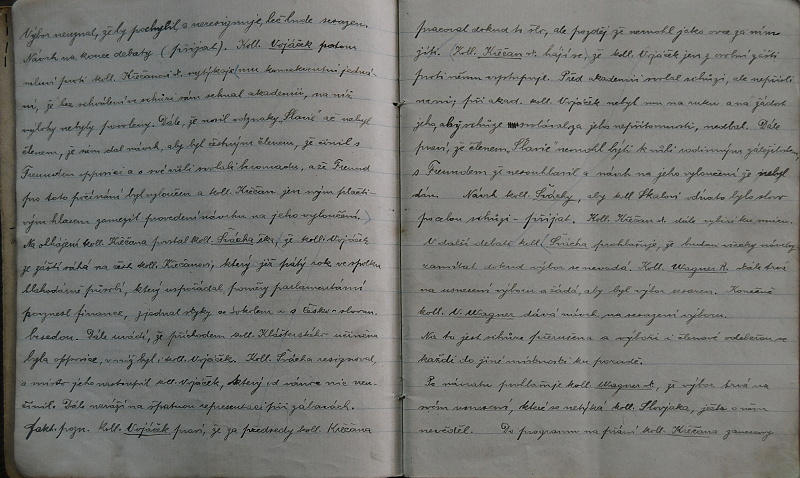 Výbor neuznal, že by pochybil, a neresignuje, leč bude sesazen.
Návrh na konec debaty (přijat). Koll. Vojáček potom
mluví proti koll. Křečanovi st. vytýkaje mu nekonsekventní jedná-
ní, že bez schválení ve schůzi sám sehnal akademii, na níž
výlohy nebyly povoleny. Dále, že nosil odznaky „Slavie" ač nebyl
členem, že sám dal návrh, aby byl čestným členem, že činil s
Freundem opposici a o své vůli svolal hromadu, a že Freund
pro toto počínání byl vyloučen a koll. Křečan jen svým plačti-
vým hlasem zamezil provedení návrhu na jeho vyloučení.
Na obhájení koll. Křečana povstal koll. Švácha řka, že koll. Vojáček
ze zášti sáhá na čest koll. Křečanovi, který již pátý rok ve spolku
blahodárně působí, který uspořádal poměry parlamentární
pozvnesl finance, zjednal styky se Sokolem a s Česko-slovan.
besedou. Dále uvádí, že příchodem koll. Klášterského učiněna
byla opposice, v níž byl i koll. Vojáček. Koll. Švácha resignoval,
a místo jeho nastoupil koll. Vojáček, který od vánoc nic neu-
činil. Dále naráží na špatnou representaci při zábavách.
Fakt. pozn. Koll. Vojáček praví, že za předsedy koll. Křečana
pracoval dokud to šlo, ale později že nemohl jako ovce za ním
jíti. Koll. Křečan st. hájí se, že koll. Vojáček jen z osobní zášti
proti němu vystupuje. Před akademií svolal schůzi, ale nepřišli
na ni; při akad. koll. Vojáček nebyl mu na ruku a na žádost
jeho, aby schůze svolával za jeho nepřítomnosti, nedbal. Dále
praví, že členem „Slavie" nemohl býti k vůli rodinným záležitostem,
s Freundem že nesouhlasil a návrh na jeho vyloučení že nebyl
dán. Návrh koll. Šváchy, aby koll. Skálovi odňato bylo slovo
po celou schůzi – přijat. Koll. Křečan st. dále vybízí ku smíru.
V další debatě koll. Švácha prohlašuje, že budou všecky návrhy
zamítat dokud výbor se nevzdá. Koll. Wagner R. dále trvá
na usnesení výboru a žádá, aby byl výbor sesazen. Konečně
koll. V. Wagner dává návrh na sesazení výboru.
Na to jest schůze přerušena a výboři i členové odeberou se
každí do jiné místnosti ku poradě.
Po návratu prohlašuje koll. Wagner R., že výbor trvá na
svém usnesení, které se netýká koll. Slovjaka, ježto o něm
nevěděl. Do programu na přání koll. Křečana zanesený